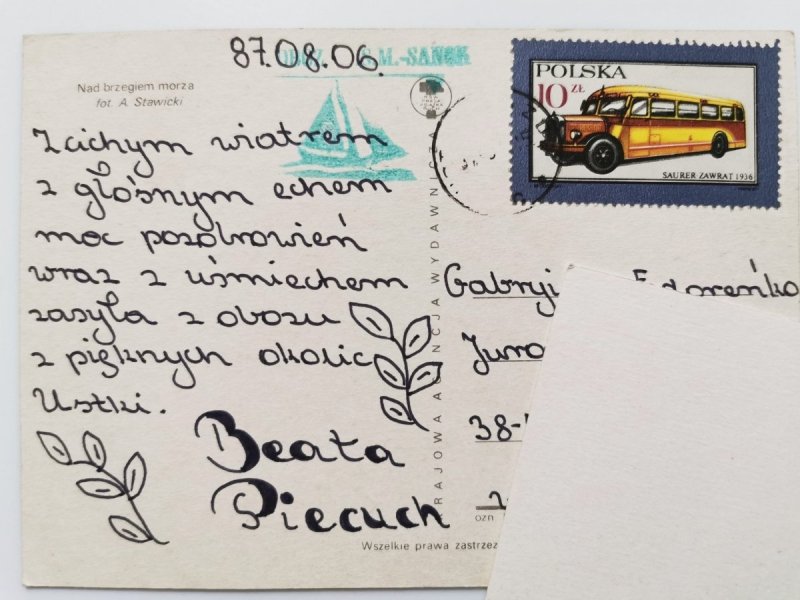 87.08.06.
M.-SANOK
Nad brzegiem morza
fot. A. Stawicki
POLSKA
10 ZŁ
SAURER ZAWRAT 1936
Z cichym wiatrem
z głośnym echem
moc pozdrowień
wraz z uśmiechem
zasyła z obozu
z pięknych okolic
Ustki.
Beata
Piecuch
KRAJOWA AGENCJA WYDAWNICZA
Gabryj
Juro
38-
ozn.
Wszelkie prawa zastrzeż